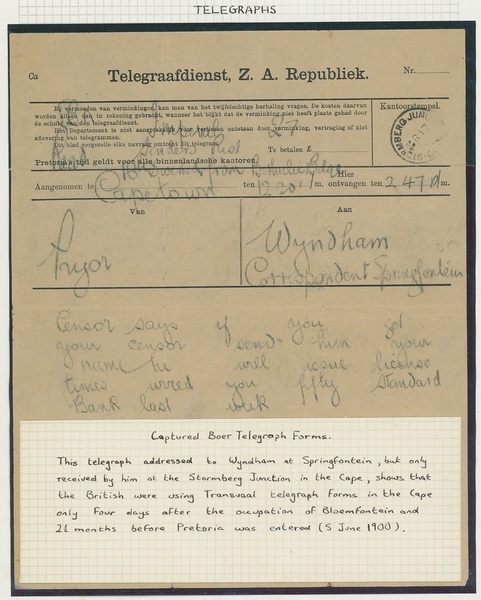 TELEGRAPHS
Ca
Telegraafdienst, Z. A. Republiek.
Nr.
Bij vermoeden van verminkingen, kan men van het twijfelachtige herhaling vragen. De kosten daarvan
worden alleen dan in rekening gebracht, wanneer het blijkt dat de verminking niet heeft plaats gehad door
de schuld van den telegraafdienst.
Het Departement is niet aansprakelijk voor verliezen ontstaan door verminking, vertraging of niet
aflevering van telegrammen.
Dit blad vergezelle elke navraag omtrent dit telegram.
Te betalen £
Kantoorstempel.
STORMBERG JUNC
Pretoria tijd geldt voor alle binnenlandsche kantoren.
Hier
Aangenomen te Capetown ten 12 20 /m. ontvangen ten 2 47 P/m.
Van
Aan
Pryor
Wyndham
Correspondent Springfontein
Censor says if you get
your censor send him your
name he will issue license
times wired you fifty standard
Bank last week
Captured Boer Telegraph Forms.
This telegraph addressed to Wyndham at Springfontein, but only
received by him at the Stormberg Junction in the Cape, shows that
the British were using Transvaal telegraph forms in the Cape
only four days after the occupation of Bloemfontein and
2½ months before Pretoria was entered (5 June 1900).